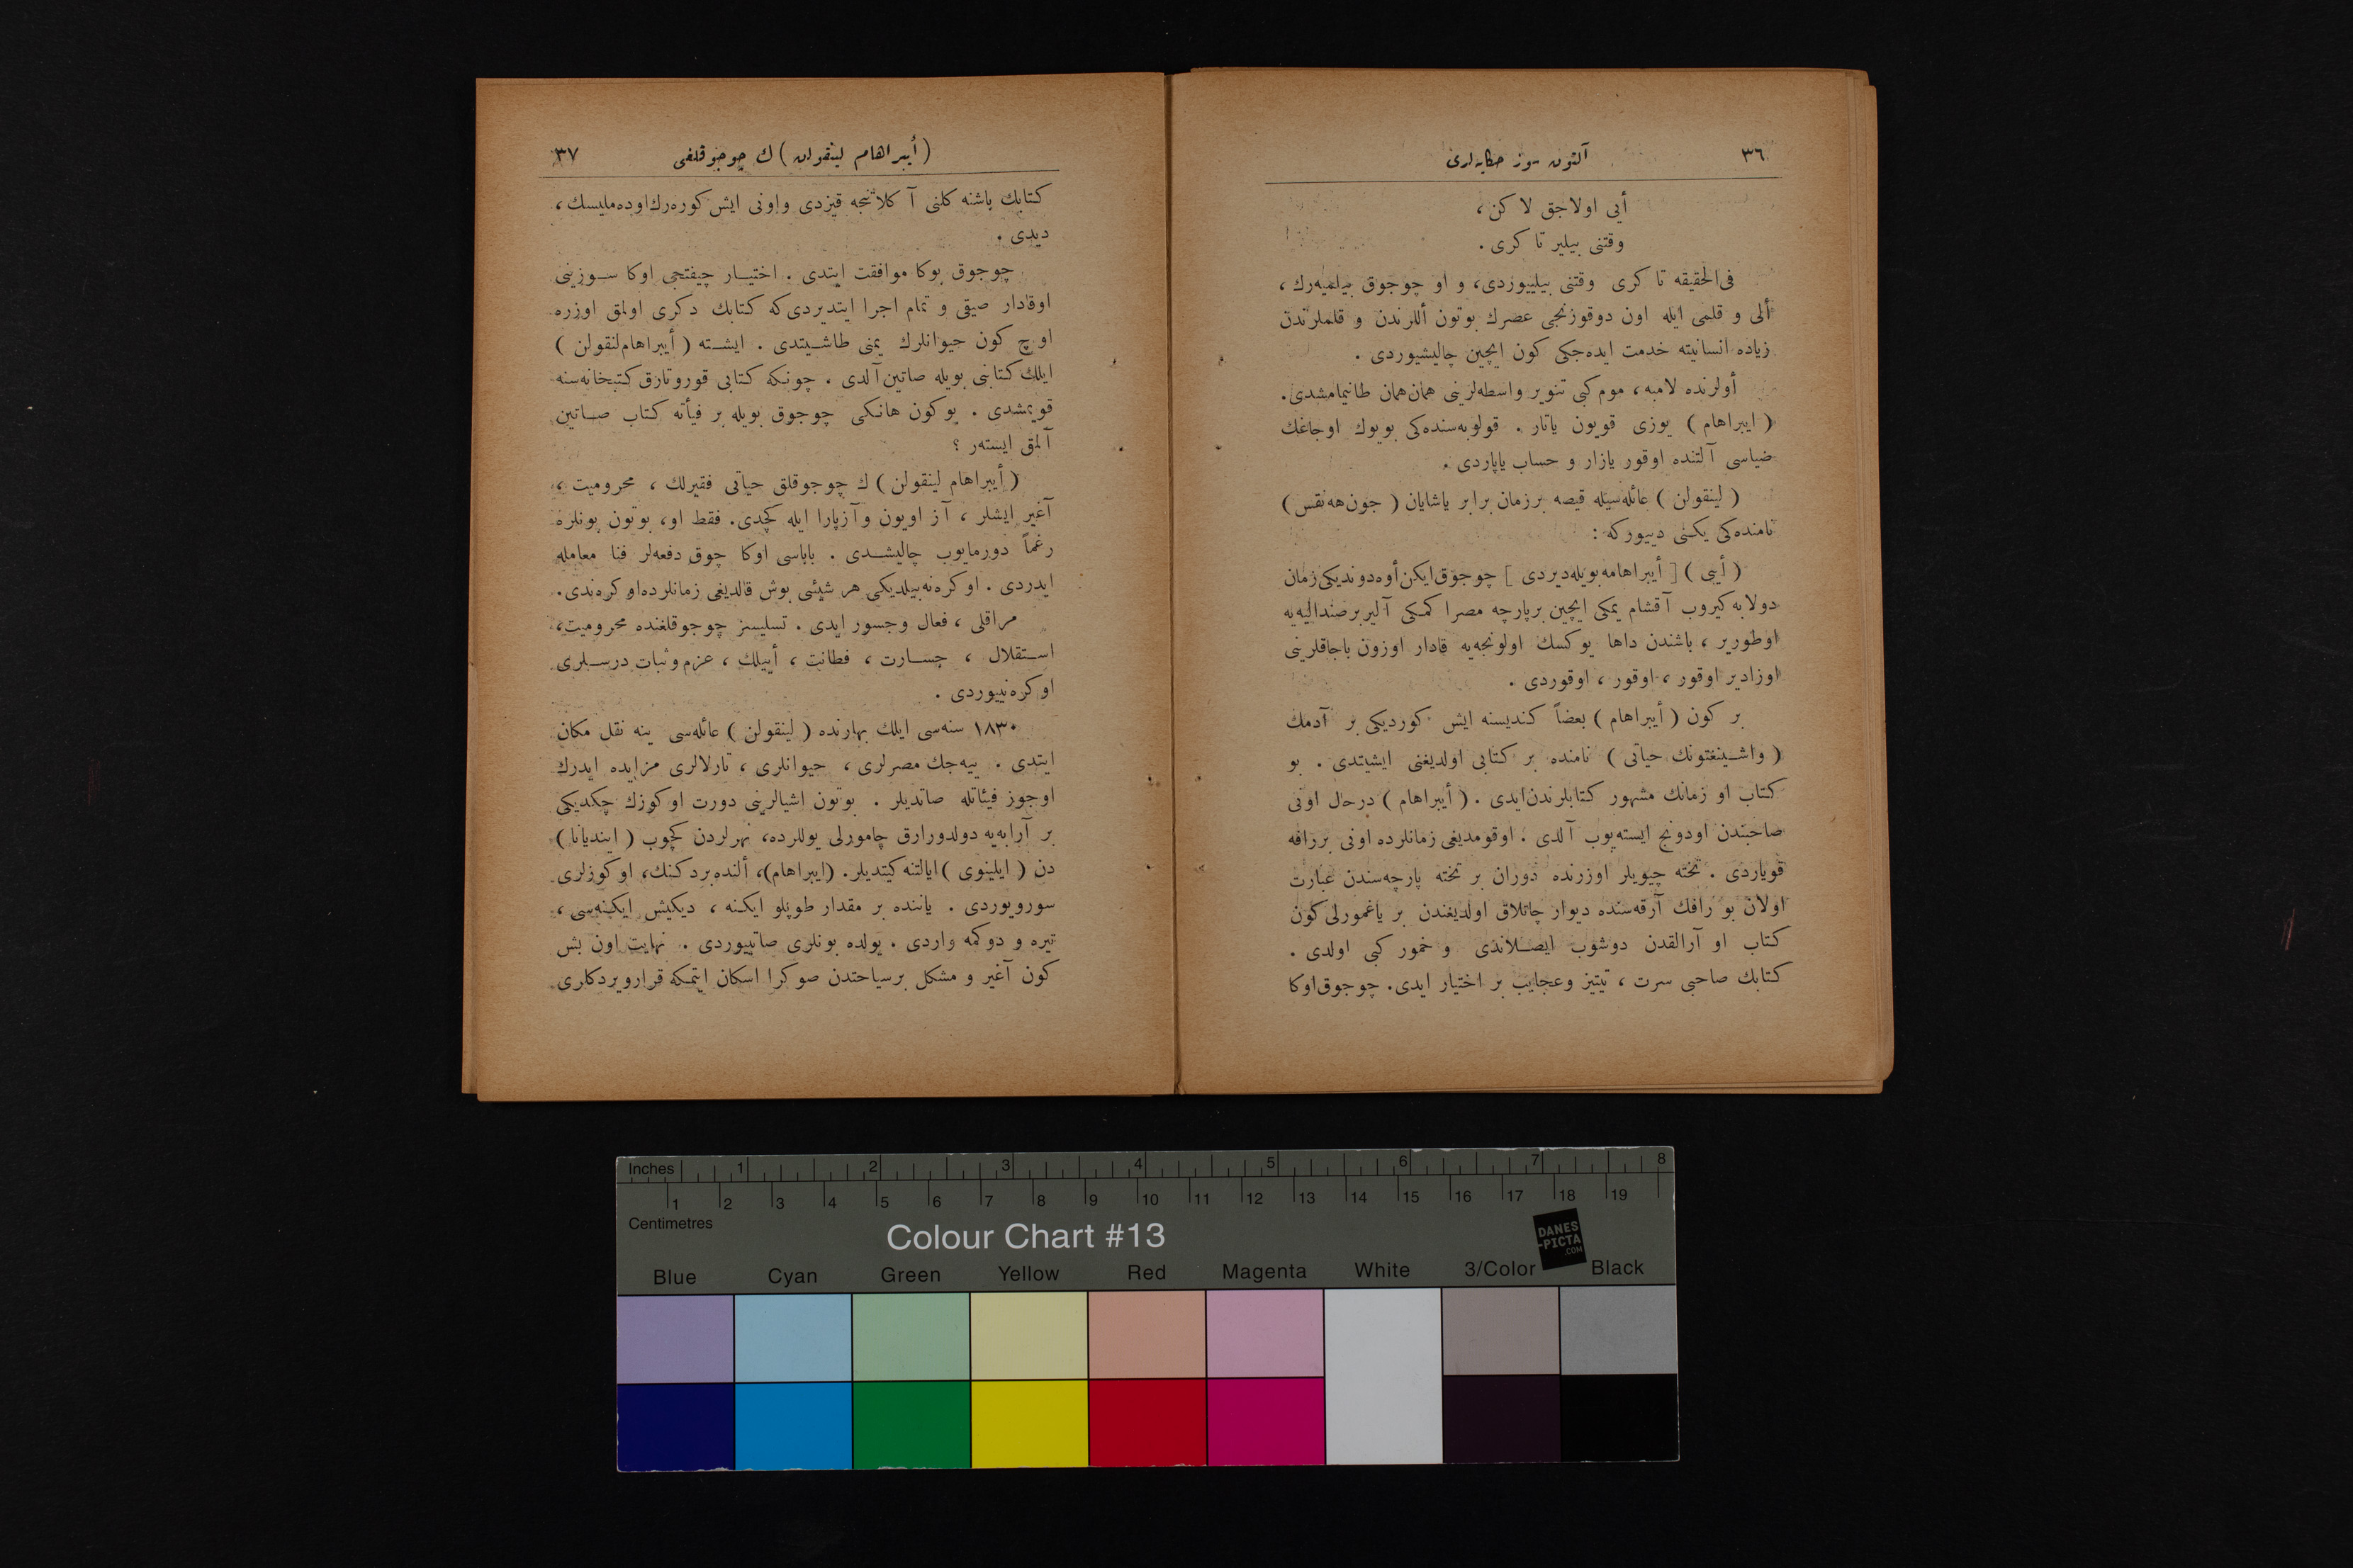 ٣٦
آلتون سوز حكايه‌لرى
أيى اولاجق لا كن ،
وقتنى بيلير تا كرى .
فى‌الحقيقه تا كرى وقتنى بيلييوردى، و او چوجوق بيلميه‌رك ،
ألى و قلمى ايله اون دوقوزنجى عصرك بوتون أللرندن و قلملرندن
زياده انسانيته خدمت ايده‌جكى كون ايچين چاليشيوردى .
أولرنده لامبه ، موم كبى تنوير واسطه‌لرينى همان همان طانيمامشدى.
( ايبراهام ) يوزى قويون ياتار . قولوبه‌سنده‌كى بويوك اوجاغك
ضياسى آلتنده اوقور يازار و حساب ياپاردى .
( لينقولن ) عائله‌سيله قيصه برزمان برابر ياشايان ( جون هه‌نقس )
نامنده‌كى يكنى دييوركه :
( أيبى ) [ أيبراهامه بويله ديردى ] چوجوق ايكن أوه دونديكى زمان
دولابه كيروب آقشام يمكى ايچين برپارچه مصرا كمكى آلير برصنداليه‌يه
اوطورير ، باشندن داها يوكسك اولونجه‌يه قادار اوزون باجاقلرينى
اوزادير اوقور ، اوقور ، اوقوردى .
بر كون ( أيبراهام ) بعضاً كنديسنه ايش كورديكى بر آدمك
( واشينغتونك حياتى ) نامنده بر كتابى اولديغنى ايشيتدى . بو
كتاب او زمانك مشهور كتابلرندن‌ايدى . ( أيبراهام ) درحال اونى
صاحبندن اودونج ايسته‌يوب آلدى . اوقومديغى زمانلرده اونى بررافه
قوياردى . تخته چيويلر اوزرنده دوران بر تخته پارچه‌سندن عبارت
اولان بو رافك آرقه‌سنده ديوار چاتلاق اولديغندن بر ياغمورلى كون
كتاب او آرالقدن دوشوب ايصلاندى و خمور كبى اولدى .
كتابك صاحبى سرت ، تيتيز وعجايب بر اختيار ايدى. چوجوق اوكا
( أيبراهام لينقولن ) ك چوجوقلغى
٣٧
كتابك باشنه كلنى آ كلاتنجه قيزدى واونى ايش كوره‌رك اوده‌مليسك ،
ديدى .
چوجوق بوكا موافقت ايتدى . اختيار چيفتجى اوكا سوزينى
اوقادار صيقى و تمام اجرا ايتديردى كه كتابك دكرى اولمق اوزره
اوچ كون حيوانلرك يمنى طاشيتدى . ايشته ( أيبراهام لنقولن )
ايلك كتابنى بويله صاتين آلدى . چونكه كتابى قوروتارق كتبخانه‌سنه
قويمشدى . بوكون هانكى چوجوق بويله بر فيأته كتاب صاتين
آلمق ايسته‌ر ؟
( أيبراهام لينقولن ) ك چوجوقلق حياتى فقيرلك ، محروميت ،
آغير ايشلر ، آز اويون وآزپارا ايله كچدى. فقط او، بوتون بونلره
رغماً دورمايوب چاليشدى . باباسى اوكا چوق دفعه‌لر فنا معامله
ايدردى . اوكره‌نه‌بيلديكى هر شيئى بوش قالديغى زمانلرده اوكره‌ندى.
مراقلى ، فعال وجسور ايدى . تسليسز چوجوقلغنده محروميت،
استقلال ، جسارت ، فطانت ، أييلك ، عزم وثبات درسلرى
اوكره‌نييوردى .
١٨٣٠ سنه‌سى ايلك بهارنده ( لينقولن ) عائله‌سى ينه نقل مكان
ايتدى . ييه‌جك مصرلرى ، حيوانلرى ، تارلالرى مزايده ايدرك
اوجوز فيئاتله صاتديلر . بوتون اشيالرينى دورت اوكوزك چكديكى
بر آرابه‌يه دولدورارق چامورلى يوللرده، نهرلردن كچوب ( اينديانا )
دن ( ايلينوى ) ايالتنه كيتديلر. (ايبراهام)، ألنده بردكنك، اوكوزلرى
سورويوردى . ياننده بر مقدار طوپلو ايكنه ، ديكيش ايكنه‌سى ،
تيره و دوكمه واردى . يولده بونلرى صاتييوردى . نهايت اون بش
كون آغير و مشكل برسياحتدن صوكرا اسكان ايتمكه قرارويردكلرى
Inches 1 2 3 4 5 6 7 8
1 2 3 4 5 6 7 8 9 10 11 12 13 14 15 16 17 18 19
Centimetres
Colour Chart #13
DANES
-PICTA
.COM
Blue Cyan Green Yellow Red Magenta White 3/Color Black